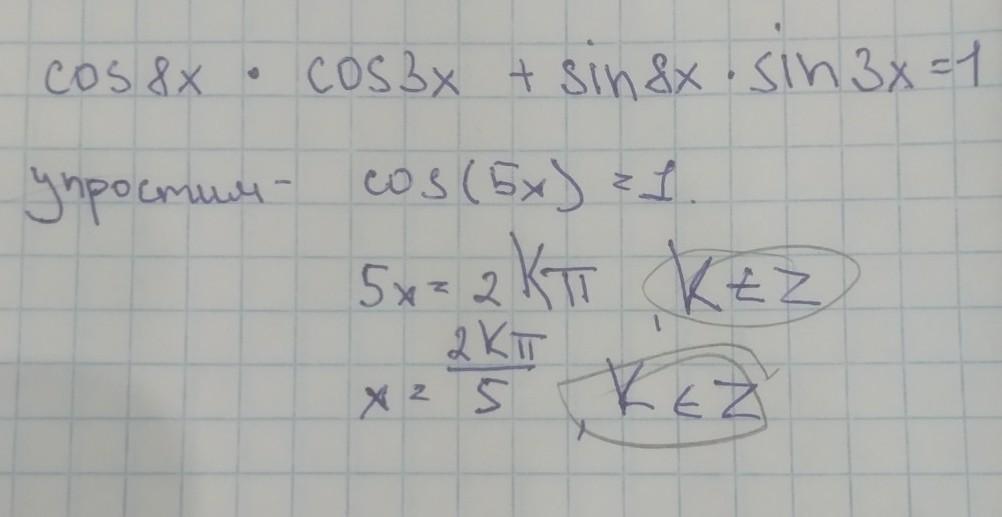 cos8x · cos3x + sin8x · sin3x = 1
упростим - cos(5x) = 1.
5x = 2Kπ, K ∈ Z
x = 2Kπ/5, K ∈ Z